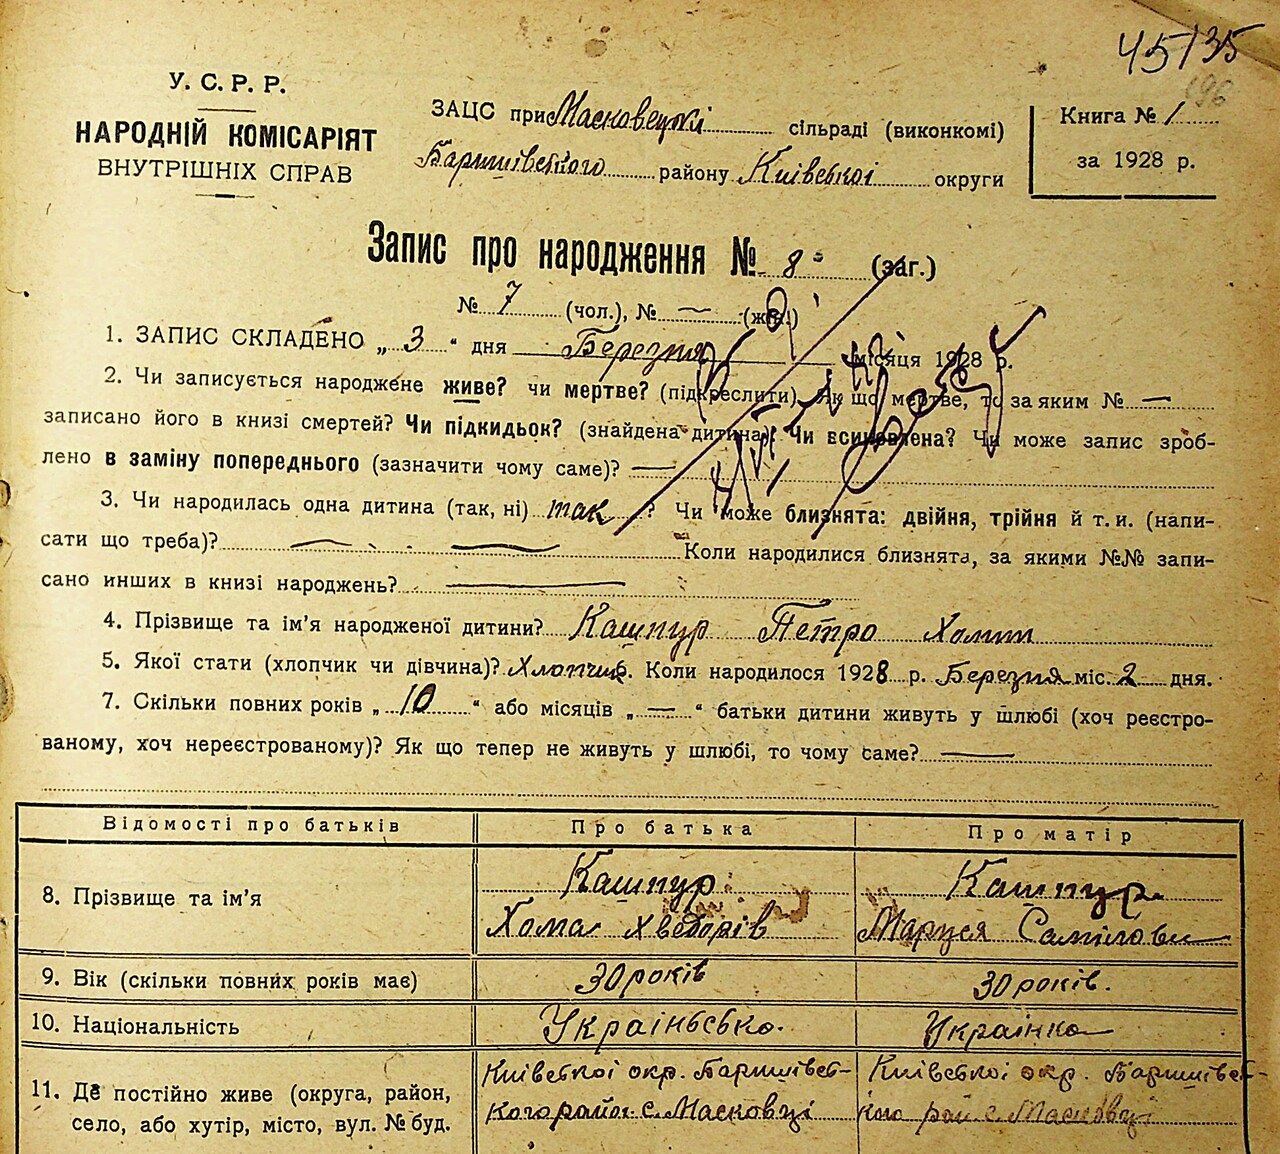 45/35
196
У. С. Р. Р.
НАРОДНІЙ КОМІСАРІЯТ
ВНУТРІШНІХ СПРАВ
ЗАЦС при Масковецкі сільраді (виконкомі)
Баришівського району Київської округи
Книга № 1
за 1928 р.
Запис про народження № 8 (заг.)
№ 7 (чол.), № — (жін.)
1. ЗАПИС СКЛАДЕНО „ 3 “ дня Березня місяця 1928 р.
2. Чи записується народжене живе? чи мертве? (підкреслити). Як що мертве, то за яким № —
записано його в книзі смертей? Чи підкидьок? (знайдена дитина). Чи всиновлена? Чи може запис зроб-
лено в заміну попереднього (зазначити чому саме)? —
3. Чи народилась одна дитина (так, ні) так ? Чи може близнята: двійня, трійня й т. и. (напи-
сати що треба)? — — Коли народилися близнята, за якими №№ запи-
сано инших в книзі народжень? —
4. Прізвище та ім’я народженої дитини? Кашпур Петро Хомит
5. Якої стати (хлопчик чи дівчина)? Хлопчик. Коли народилося 1928 р. Березня міс. 2 дня.
7. Скільки повних років „ 10 “ або місяців „ — “ батьки дитини живуть у шлюбі (хоч реєстро-
ваному, хоч нереєстрованому)? Як що тепер не живуть у шлюбі, то чому саме? —
Відомості про батьків Про батька Про матір
8. Прізвище та ім’я Кашпур Кашпур
Хома Хведорів Маруся Самілови
9. Вік (скільки повних років має) 30 років 30 років.
10. Національність Українсько. Українка
11. Де постійно живе (округа, район, Київської окр. Баришівсь- Київської окр. Баришівсь-
село, або хутір, місто, вул. № буд. кого район с. Масковці кого рай с. Масковці